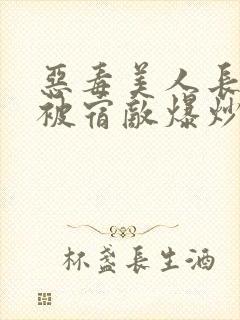 惡毒美人長
被宿敵爆炒
杯盞長生酒